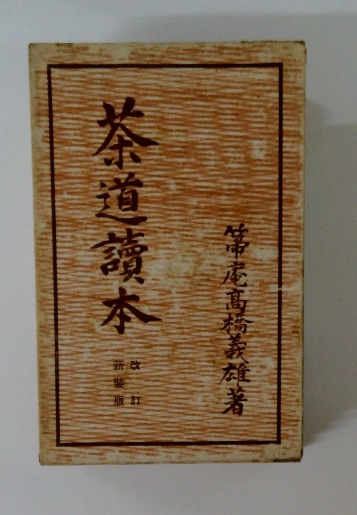 箒庵高橋義雄著
茶道讀本
改訂
新裝版